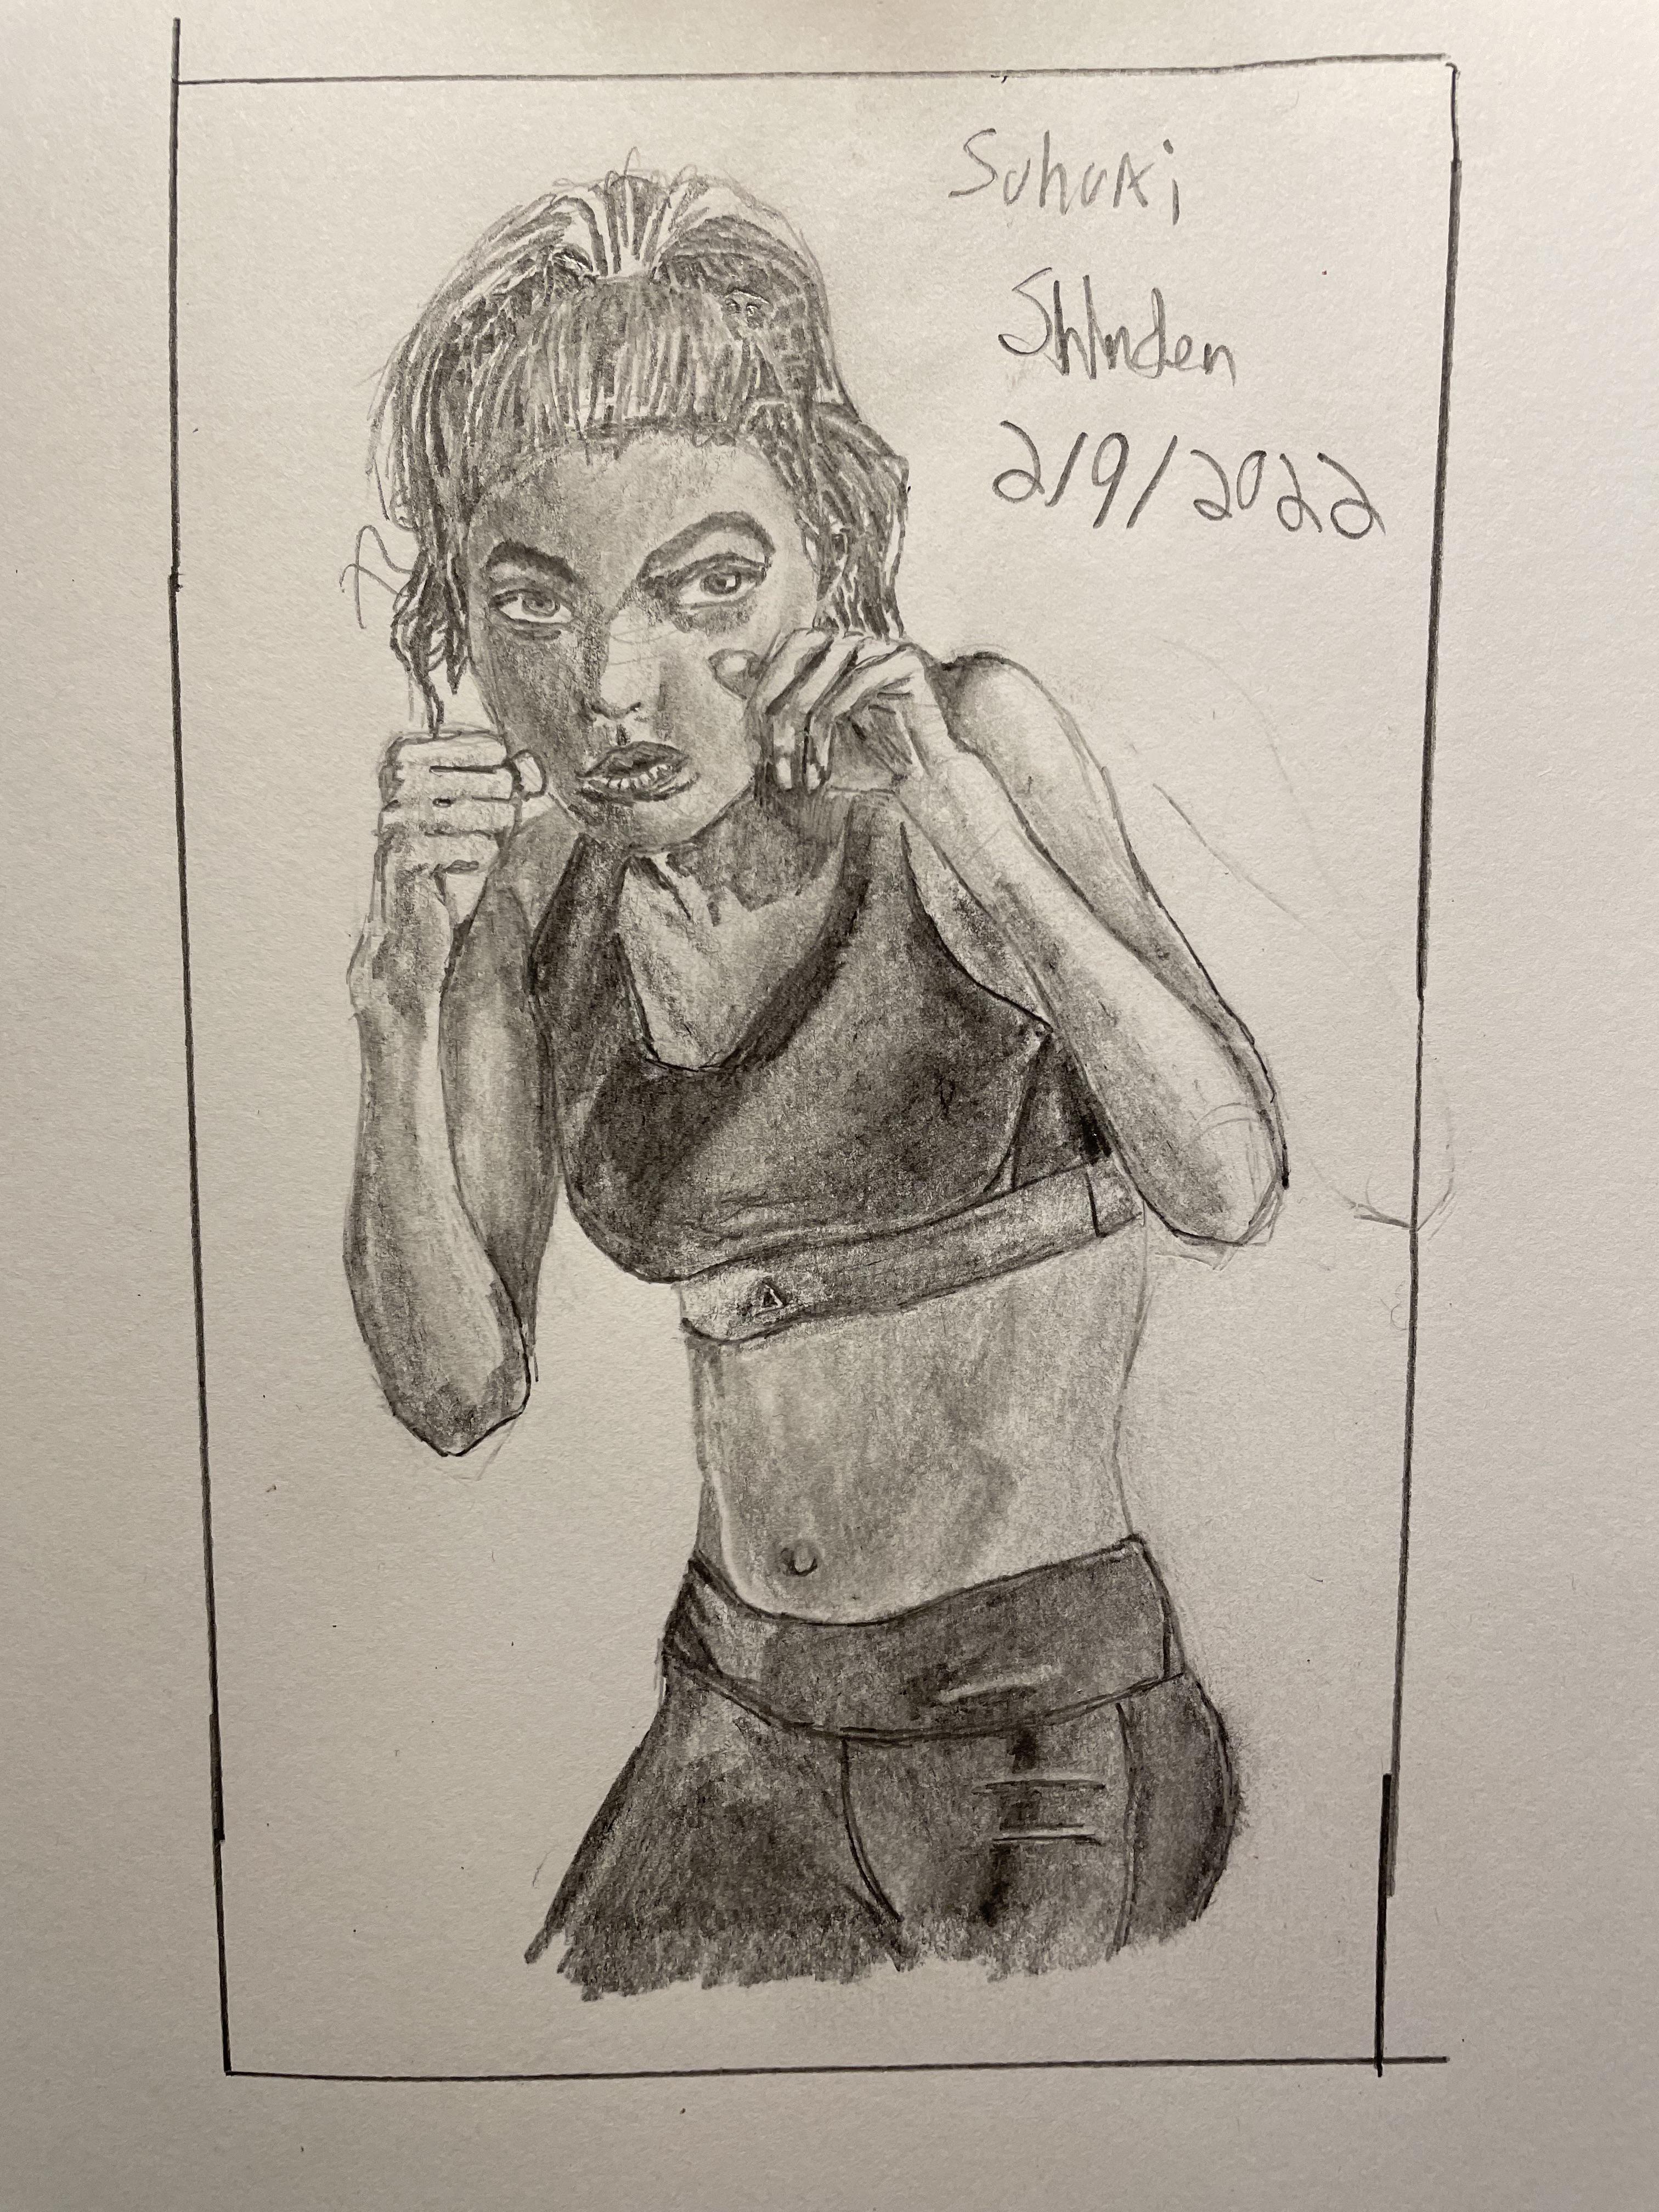 Suhuki
Shinden
2/9/2022